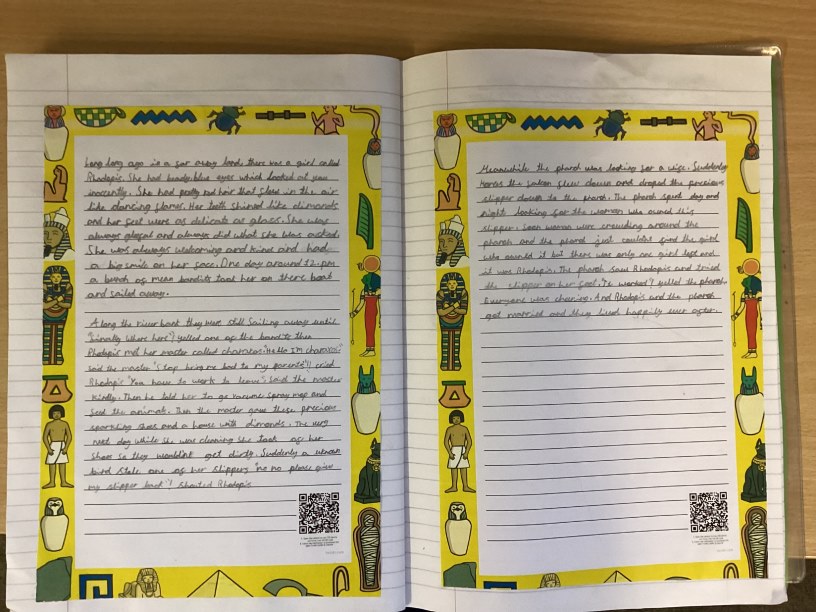 Long long ago in a far away land, there was a girl called
Rhodopis. She had beady blue eyes which looked at you
inocently. She had pretty red hair that flew in the air
like dancing flames. Her teeth shined like dimonds
and her feet were as delicate as glass. She was
always and always did what she was asked.
She was always welcoming and kind and had
a big smile on her face. One day around 12.pm
a bunch of mean bandits took her on there boat
and sailed away.
Along the river bank they were still sailing away until
"finally where here"! yelled one of the then
Rhodopis met her master called "Hello I'm
said the master "stop bring me back to my parents"! cried
Rhodopis "You have to work to leave" said the master
kindly. Then he told her to go vacume spray mop and
feed the animals. Then the master gave these precious
sparkling shoes and a house with dimonds. The very
next day while she was cleaning she took of her
shoes so they wouldn't get dirty. Suddenly a
bird stole one of her slippers "no no please give
my slipper back"! shouted Rhodopis
Meanwhile the pharoh was looking for a wife. Suddenly
horus the falcon flew down and droped the precious
slipper down to the pharoh. The pharoh spent day and
night looking for the woman who owned this
slipper. Soon women were crowding around the
pharoh and the pharoh just couldn't find the girl
who owned it but there was only one girl left and
it was Rhodopis. The pharoh saw Rhodopis and tried
the slipper on her foot. "It worked"! yelled the pharoh.
Everyone was chering. And Rhodopis and the pharoh
got married and they lived happily ever after.